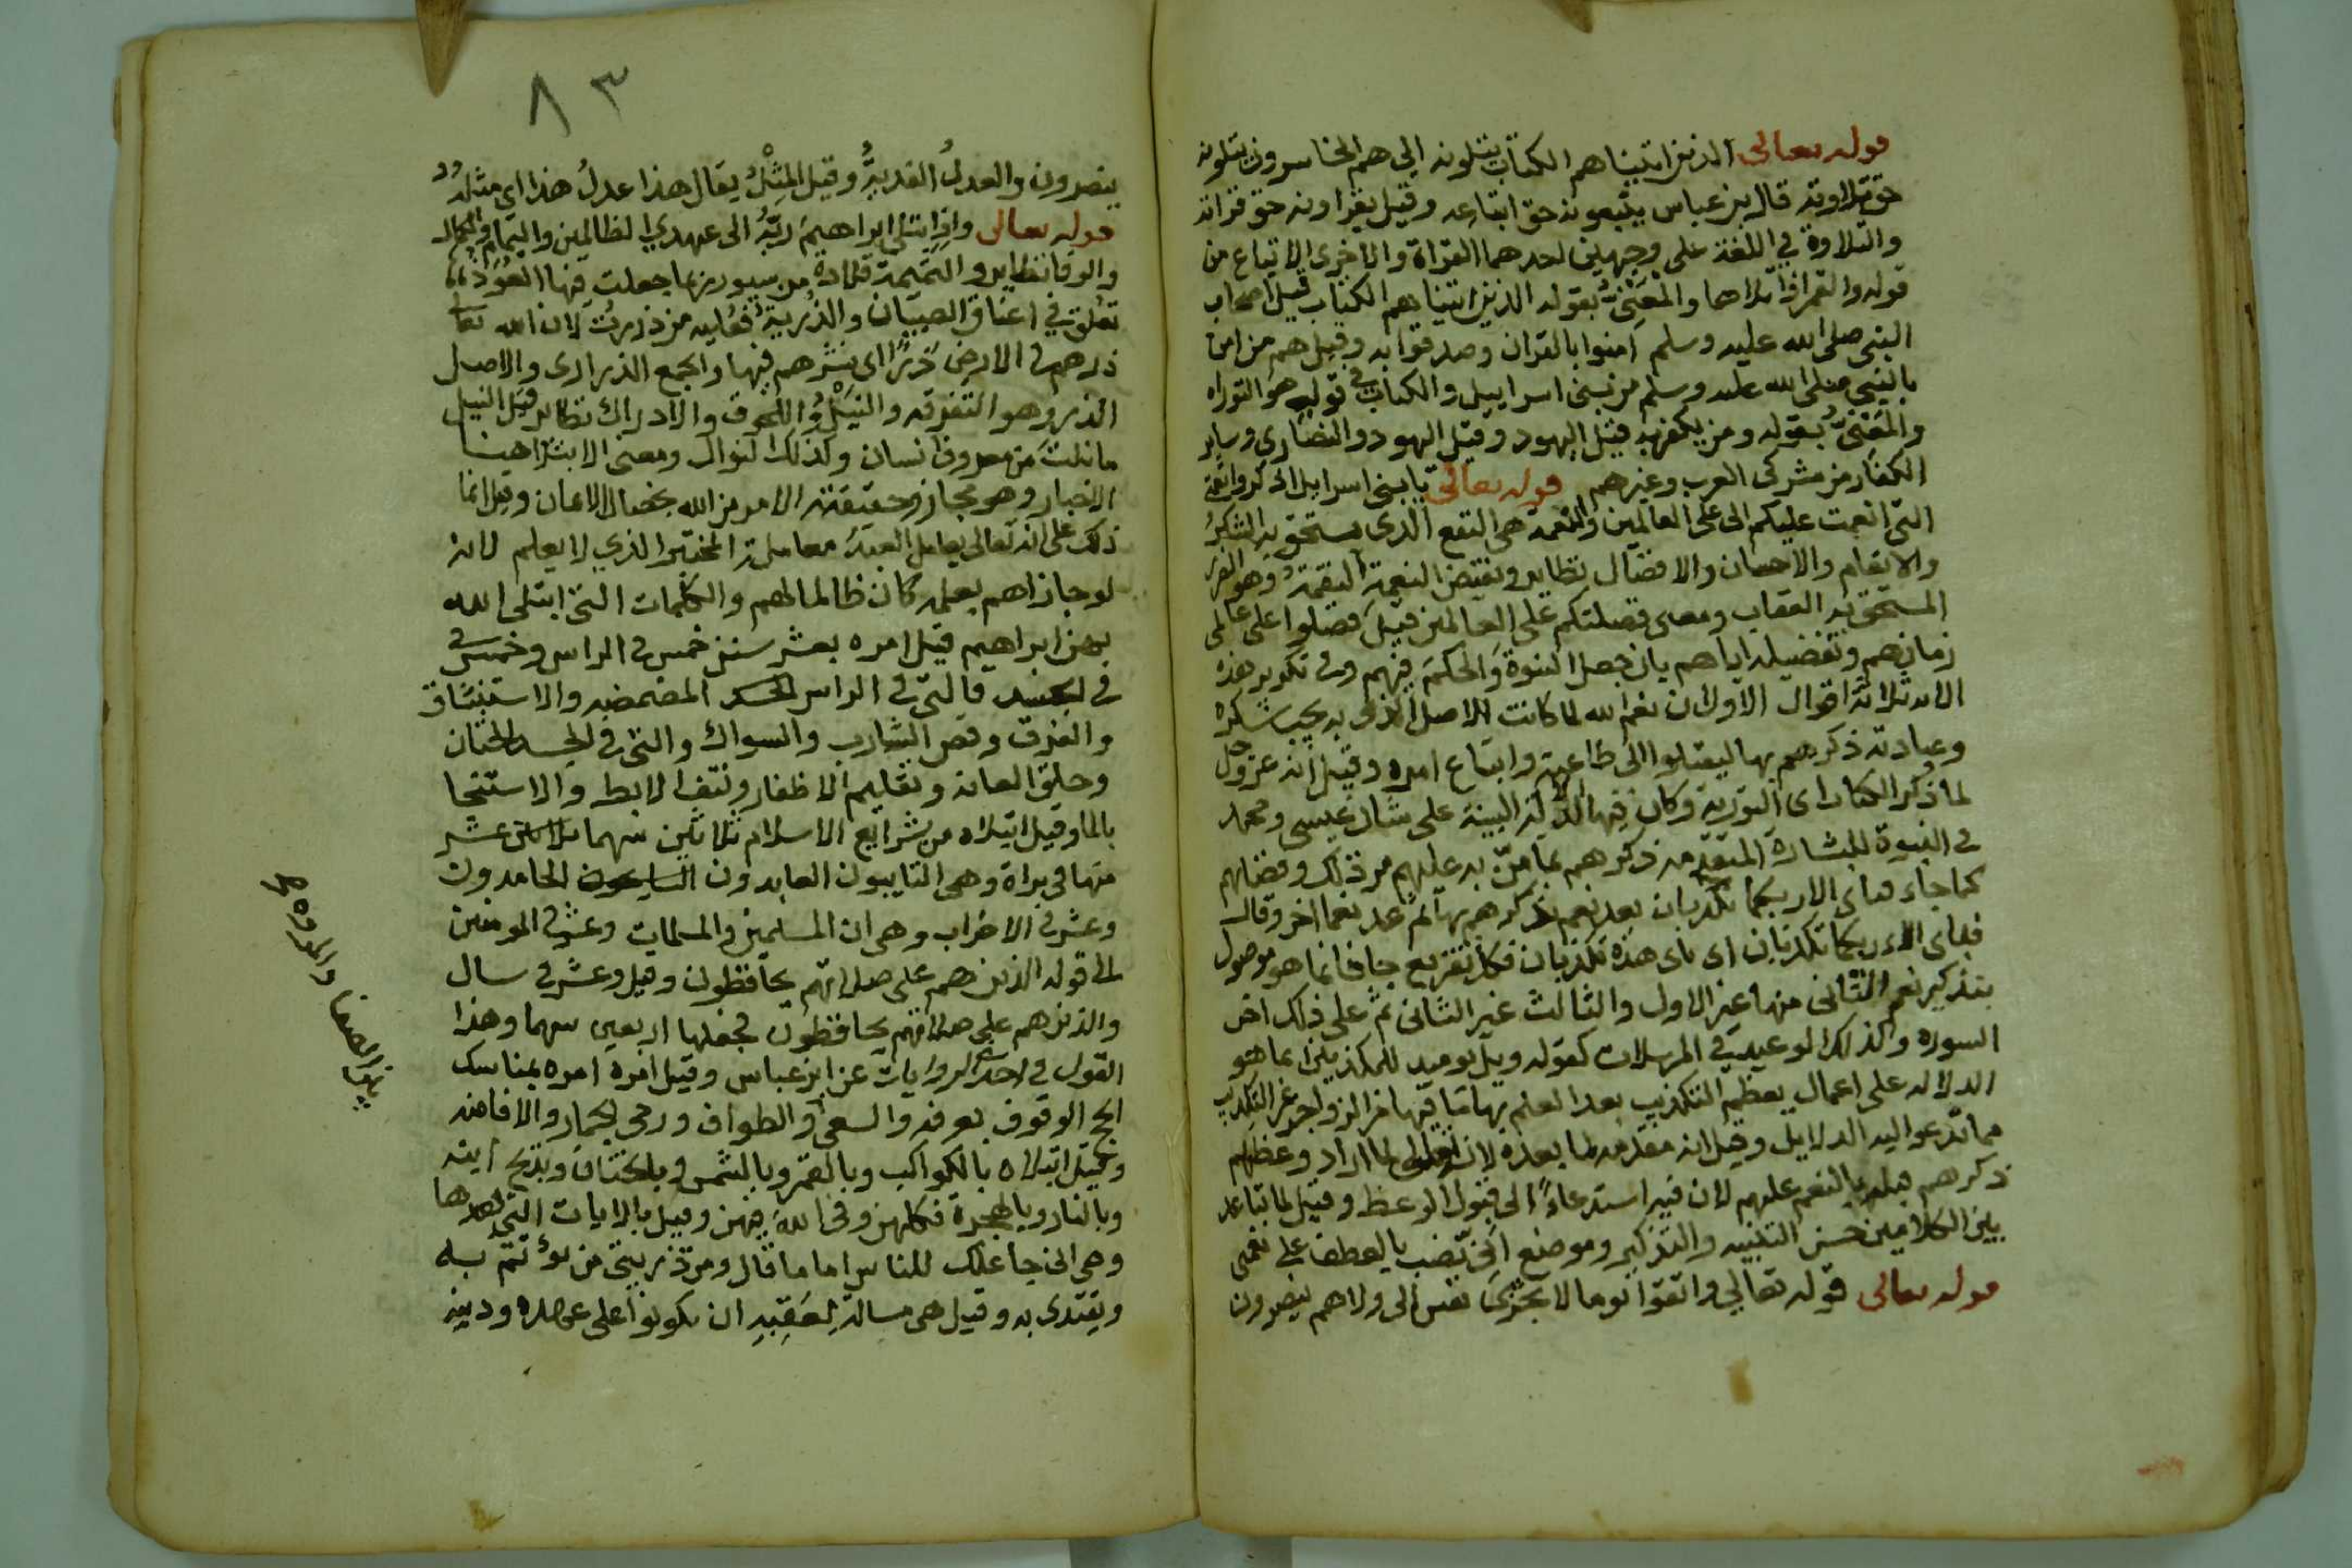 قوله تعالى الذين اتيناهم الكتاب يتلونه إلى هم الخاسرون يتلونه
حق تلاوته قال بن عباس يتبعونه حق اتباعه وقيل يقراونه حق قراته
والتلاوة في اللغة على وجهين احدهما القراة والاخرى الاتباع من
قوله والقمر اذا تلاها والمَعنيُّ بقوله الذين اتيناهم الكتاب قيل اصحاب
النبى صلى الله عليه وسلم امنوا بالقران وصدقوا به وقيل هم من امن
بالنبي صلى الله عليه وسلم من بنى اسرايل والكتاب في قوله هو التوراه
والمَعنيُّ بقوله ومن يكفر به قيل اليهود وقيل اليهود والنصارى وساير
الكفار من مشركى العرب وغيرهم قوله تعالى يا بنى اسرايل اذكروا نعمة
التى انعمت عليكم الى على العالمين والنعمة هى النفع الذى يستحق به الشكرُ
والانعام والاحسان والافضال نظاير ونقيض النعمة النقمةُ وهو الضر
المستحق به العقاب ومعنى فضلتكم على العالمين قيل فضلوا على عالمى
زمانهم وتفضيله اياهم بان جعل النبوة والحكم فيهم وفى تكرير هذه
الايه ثلاثة اقوال الاول ان نعم الله لما كانت الاصل الذى به يجب شكره
وعبادته ذكرهم بها ليقبلوا الى طاعته واتباع امره وقيل انه عز وجل
لما ذكر الكتاب اى التورية وكان فيها الدلالة البينة على شان عيسى ومحمد
فى النبوة للبشارة المتقدمه ذكرهم بما منّ به عليهم من ذلك وفضلهم
كما جاء فباى الاء ربكما تكذبان بعد نعم ذكرهم بها ثم عد نعما اخر وقال
فباى الاء ربكما تكذبان اى باى هذه تكذبان فكل تقريع جا فانما هو موصول
بتذكير نعم الثانى منها غير الاول والثالث غير الثانى ثم على ذلك اخر
السوره وكذلك الوعيد فى المرسلات كقوله ويل يوميذ للمكذبين انما هو
الدلاله على اعمال يعظم التكذيب بعد العلم بها مما فيها من الزواجر عن التكذيب
مما تدعوا اليه الدلايل وقيل انه مقدمه لما بعده لان الله تعالى لما اراد وعظهم
ذكرهم قبله بالنعم عليهم لان فيه استدعاءً الى قبول الوعظ وقيل لما تباعد
بين الكلامين حسن التنبيه والتذكير وموضع انى نصب بالعطف على نعمتى
قوله تعالى قوله تعالى واتقوا يوما لا تجزى نفس الى ولا هم ينصرون
٨٣
ينصرون والعدلُ الفديةُ وقيل المِثْلُ يقال هذا عدلُ هذا اى مثلُهُ
قوله تعالى واذ ابتلى ابراهيم ربّهُ الى عهدي الظالمين والتمام والكمال
والوفا نظاير والتميمة قلادة من سيور ربما جعلت فيها العُوَذُ
تعلق في اعناق الصبيان والذُريةُ فعليه من ذررتُ لان الله تعالى
ذرهم فى الارض ذرًّا اى نشرهم فيها والجمع الذرارى والاصل
الذر وهو التفرقه والنيلُ واللحوق والادراك نظاير قيل النيل
ما نلت من معروف انسان وكذلك النوال ومعنى الابتلا هينا
الاختبار وهو مجاز وحقيقته الامر من الله بخصال الايمان وقيل انما
ذلك على انه تعالى يعامل العبدَ معاملة المختبر الذي لا يعلم لانه
لو جازاهم بعلمه كان ظالما لهم والكلمات التى ابتلى الله
بهن ابراهيم قيل امره بعشر سنن خمس فى الراس وخمس فى
فى الجسد فالتى فى الراس المضمضه والاستنشاق
والفرق وقص الشارب والسواك والتى فى الجسد الختان
وحلق العانه وتقليم الاظفار ونتف الابط والاستنجا
بالما وقيل ابتلاه من شرايع الاسلام ثلاثين سهما عشر
منها فى براة وهى التايبون العابدون الحامدون
وعشر فى الاحزاب وهى ان المسلمين والمسلمات وعشر فى المومنين
الى قوله الذين هم على صلاتهم يحافظون وقيل وعشر فى سال
والذين هم على صلاتهم يحافظون فجعلها اربعين سهما وهذا
القول فى احدى الروايات عن ابن عباس وقيل امره امره بمناسك
الحج الوقوف بعرفه والسعى والطواف ورمى الجمار والافاضه
وقيل ابتلاه بالكواكب وبالقمر وبالشمس وبالختان وبذبح ابنه
وبالنار وبالهجرة فكلهن وفى الله فيهن وقيل بالايات التى بعدها
وهى انى جاعلك للناس اماما قال ومن ذريتى من يؤتم به
ويقتدى به وقيل هى مسالة لِعَقِبِهِ ان يكونوا على عهده ودينه
بين الصفا والمروه